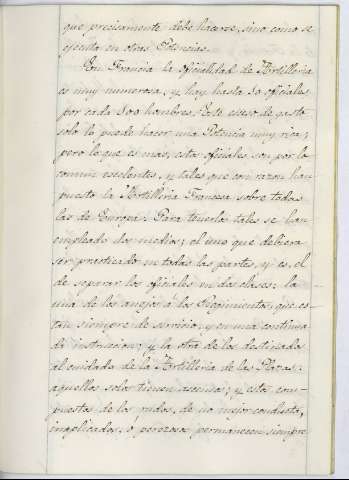 que precisamente debe hacerse, sino como se
ejecuta en otras Potencias.
En Francia la oficialidad de Artilleria
es muy numerosa, y hay hasta 30 oficiales
por cada 800 hombres. Este exeso de gasto
solo lo puede hacer una Potencia muy rica;
pero lo que es mas, estos oficiales son por lo
comun escelentes, y tales que con razon han
puesto la Artilleria Francesa sobre todas
las de Europa. Para tenerlos tales se han
empleado dos medios; el uno que debiera
ser practicado en todas las partes, y es, el
de separar los oficiales en dos clases: la
una de los anejos á los Regimientos, que es-
tan siempre de servicio, y en una continua
da instruccion; y la otra de los destinados
al cuidado de la Artilleria de las Plazas:
aquellos solos tienen ascenso; y estos com-
puestos de los rudos, de no mejor conducta,
inaplicados, ó perezosos permanecen siempre